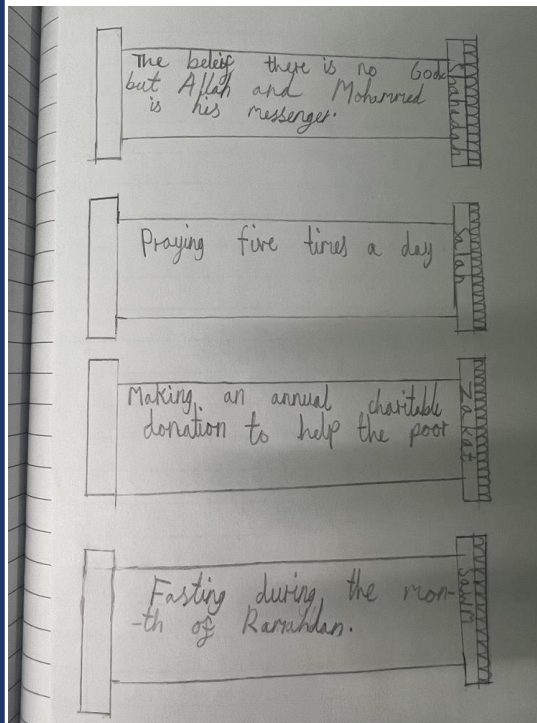 The beleif there is no God
but Allah and Mohammed
is his messenger.
Shahedah
Praying five times a day
Salah
Making an annual charitable
donation to help the poor
Zakat
Fasting during the mon-
-th of Ramahdan.
Sawm